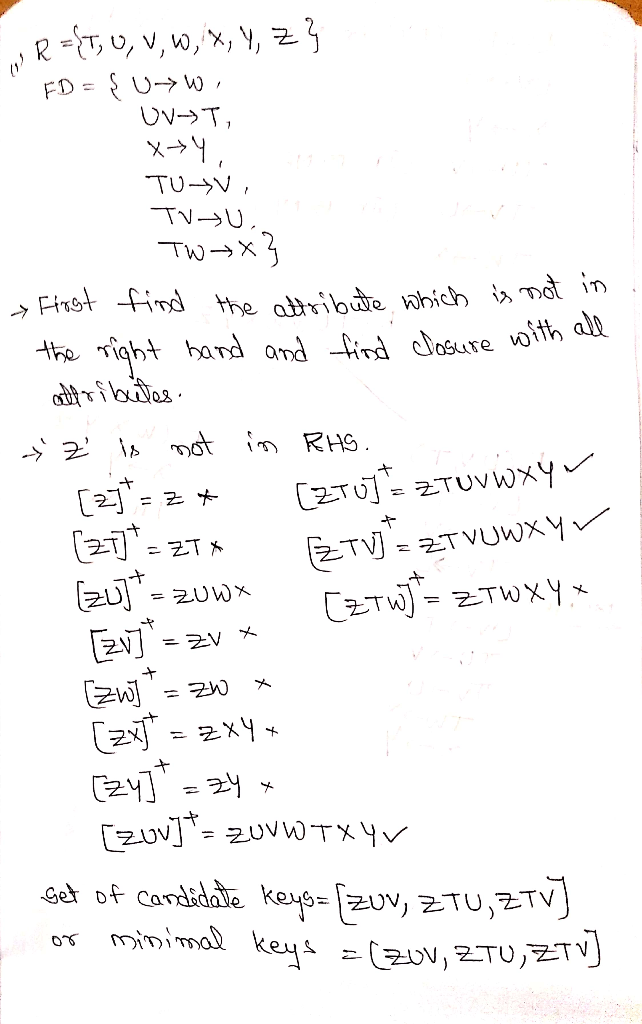 (1) R = {T, U, V, W, X, Y, Z}
FD = { U→W,
UV→T,
X→Y,
TU→V,
TV→U,
TW→X}
→ First find the attribute which is not in
the right hand and find closure with all
attributes.
→ 'Z' is not in RHS.
[Z]⁺ = Z ×
[ZT]⁺ = ZT ×
[ZU]⁺ = ZUW×
[ZV]⁺ = ZV ×
[ZW]⁺ = ZW ×
[ZX]⁺ = ZXY ×
[ZY]⁺ = ZY ×
[ZUV]⁺ = ZUVWTXY✓
[ZTU]⁺ = ZTUVWXY✓
[ZTV]⁺ = ZTVUWXY✓
[ZTW]⁺ = ZTWXY ×
Set of candidate keys = [ZUV, ZTU, ZTV]
or minimal keys = [ZUV, ZTU, ZTV]